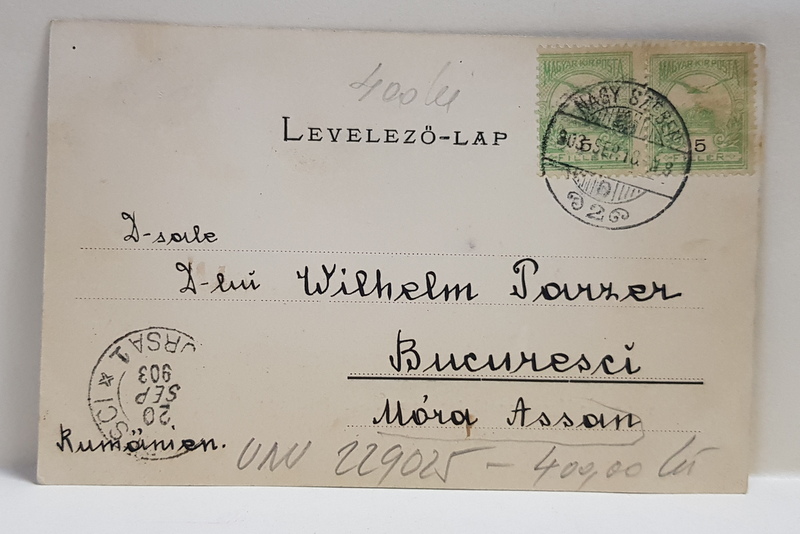 400 lei
MAGYAR KIR. POSTA MAGYAR KIR. POSTA
5 5
FILLÉR FILLÉR
NAGY SZEBEN
903 SEP. 10.
2
LEVELEZŐ-LAP
D-sale
D-lui Wilhelm Parzer
Bucuresci
Móra Assan
Rumänien.
20
SEP
903
UNU 229025 – 400,00 lei